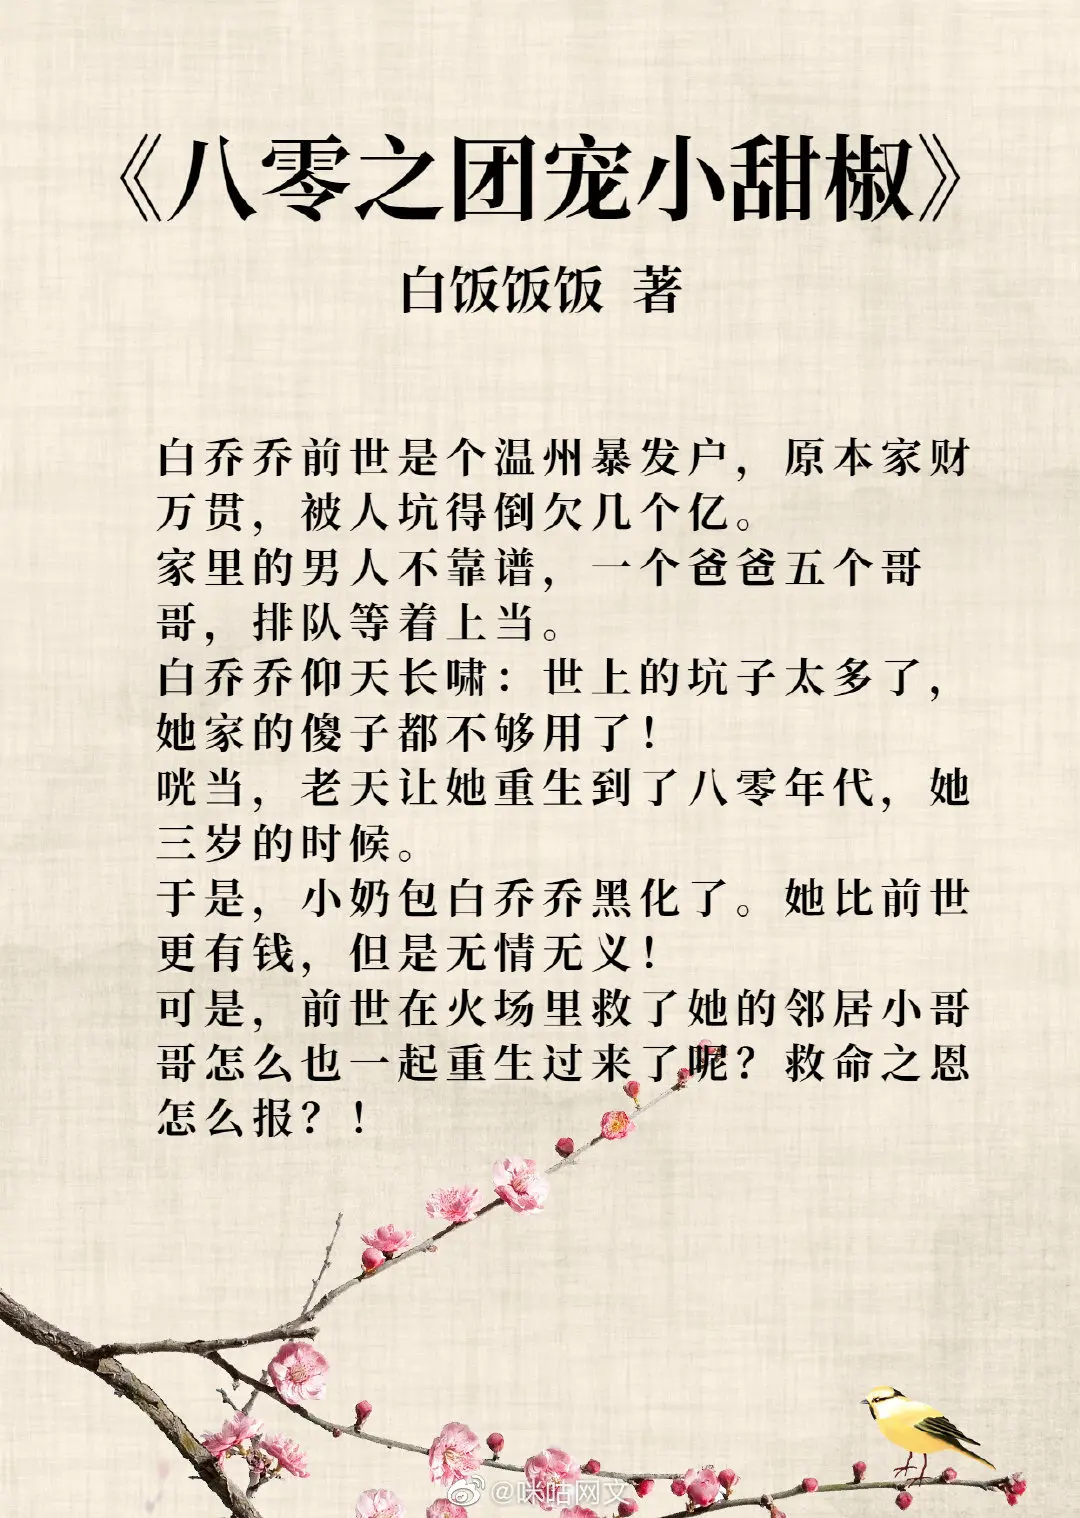 《八零之团宠小甜椒》
白饭饭饭 著
白乔乔前世是个温州暴发户，原本家财
万贯，被人坑得倒欠几个亿。
家里的男人不靠谱，一个爸爸五个哥
哥，排队等着上当。
白乔乔仰天长啸：世上的坑子太多了，
她家的傻子都不够用了！
咣当，老天让她重生到了八零年代，她
三岁的时候。
于是，小奶包白乔乔黑化了。她比前世
更有钱，但是无情无义！
可是，前世在火场里救了她的邻居小哥
哥怎么也一起重生过来了呢？救命之恩
怎么报？！
@咪咕网文